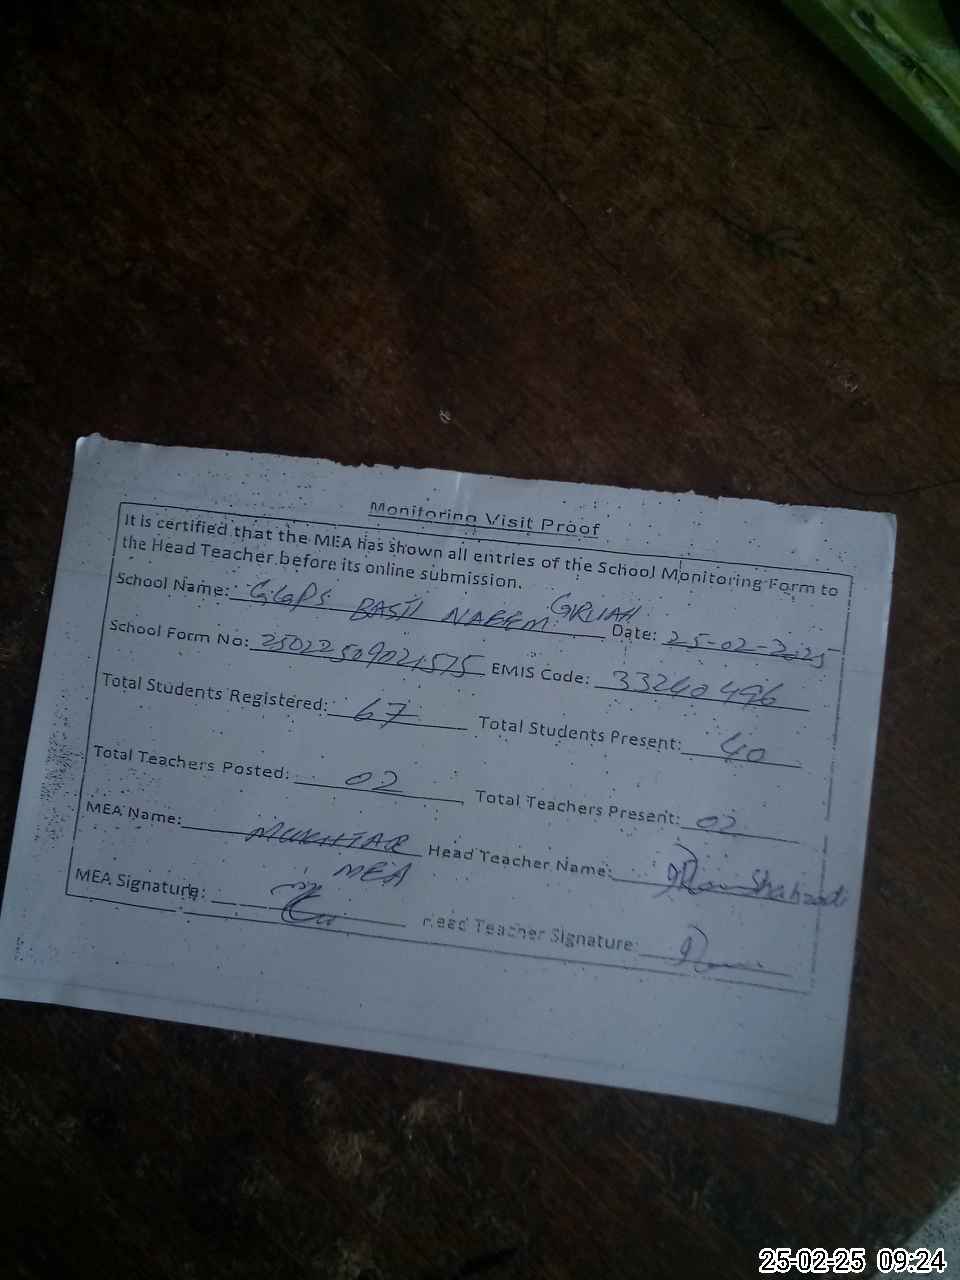 Monitoring Visit Proof
It is certified that the MEA has shown all entries of the School Monitoring Form to
the Head Teacher before its online submission.
School Name: GGPS BASTI NAEEM Date: 25-02-2025
School Form No: EMIS Code: 33240496
Total Students Registered: 67 Total Students Present: 40
Total Teachers Posted: 02 Total Teachers Present: 02
MEA Name: MUKHTAR Head Teacher Name: Shahzadi
MEA
MEA Signature: Head Teacher Signature:
25-02-25 09:24